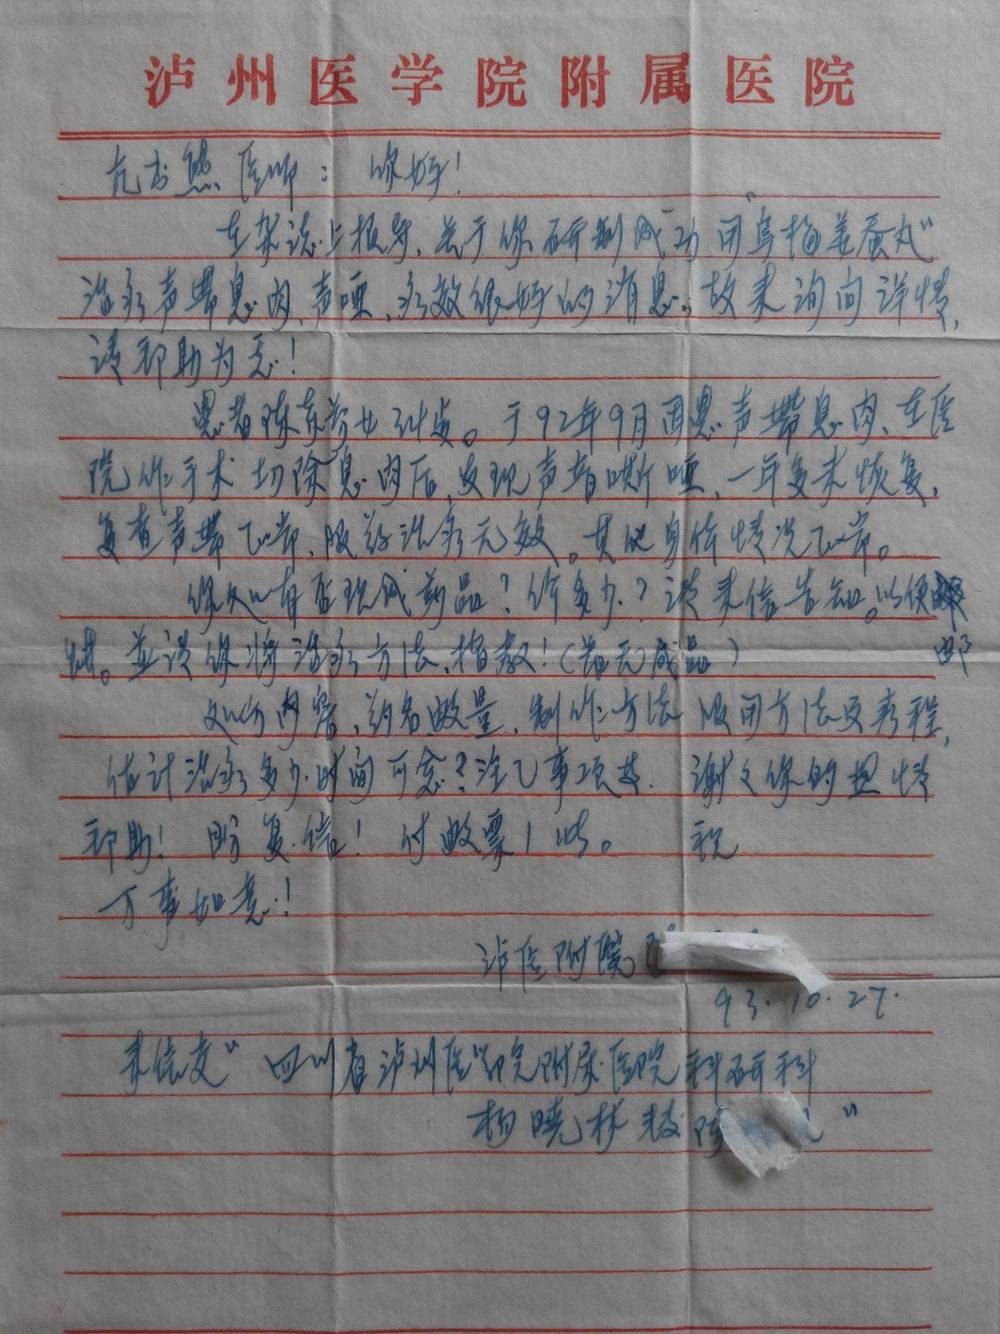 泸州医学院附属医院
医师：你好！
在杂志上报导，关于你研制成功用“乌梅姜蚕丸”
治疗声带息肉，声哑，疗效很好的消息。故来询问详情，
请帮助为感！
患者陈东 女 岁。于92年9月因患声带息肉、在医
院作手术切除息肉后，发现声音嘶哑，一年多未恢复，
复查声带正常，服药治疗无效。其他身体情况正常。
你处有否现成药品？价多少？请来信告知。以便邮
购。并请你将治疗方法，指教！（若无成品）
处方内容，药名数量，制作方法 服用方法及疗程，
估计治疗多少时间可愈？注意事项等. 谢谢你的热情
帮助！ 盼复信！ 付邮票1张。 祝
万事如意！
泸医附院
93.10.27.
来信交“四川省泸州医学院附属医院科研科
杨晓林 转 ”